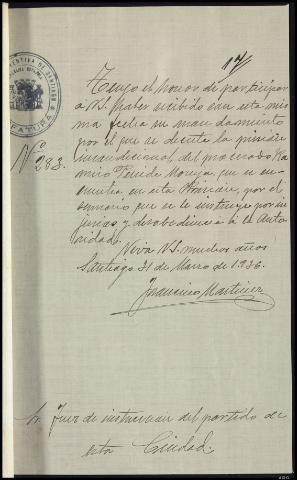 17
PREVENTIVA DE SANTIAGO
JEFATURA
Nº 283.
Tengo el honor de participar
a V.S. haber recibido con esta mis
ma fecha su mandamiento
por el que se decreta la prisión
incondicional del procesado Ra
miro Moreya, que se en
cuentra en esta Prisión, por el
sumario que se le instruye por in
jurias y desobediencia a la Auto
ridad.
Viva V.S. muchos años
Santiago 31 de Marzo de 1.936.
Francisco Martinez
Sr. Juez de instruccion del partido de
esta Ciudad.